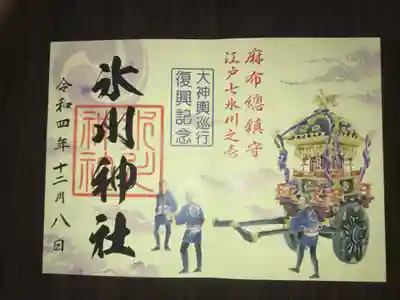 麻布總鎮守
江戸七氷川之壱
大神輿巡行
復興記念
氷川神社
令和四年十二月八日